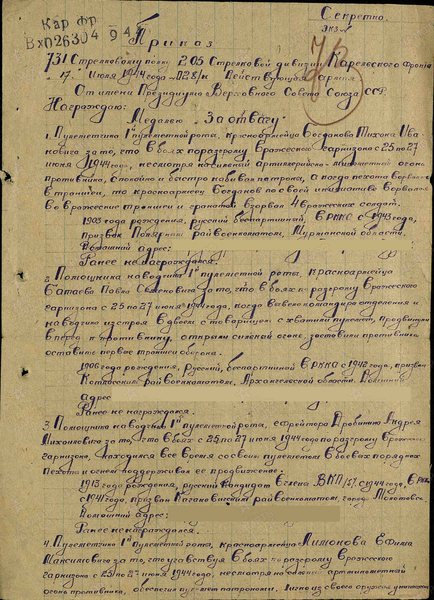 Секретно.
экз №
Кар фр
Вх п26304 9 44
Приказ
731 Стрелковому полку 205 Стрелковой дивизии Карельского фронта
17 Июля 1944 года № 028/н Действующая армия
От имени Президиума Верховного Совета Союза ССР
Награждаю:
Медалью „За отвагу"
1. Пулеметчика 1й пулеметной роты, красноармейца Богданова Михаила Ива-
новича за то, что в боях по разгрому вражеского гарнизона с 25 по 27
июня 1944 года, несмотря на сильный артиллерийско-минометный огонь
противника, спокойно и быстро набивал патроны, а когда пехота ворвалась
в траншеи, то красноармеец Богданов по своей инициативе ворвался
во вражеские траншеи и гранатой взорвал 4 вражеских солдат.
1903 года рождения, Русский, беспартийный, в РККА с 1943 года,
призван Полярным райвоенкоматом, Мурманской области.
Домашний адрес:
Ранее не награждался.
2. Помощника наводчика 1й пулеметной роты, красноармейца
Батаева Павла Семеновича за то, что в боях по разгрому вражеского
гарнизона с 25 по 27 июня 1944 года, когда командир отделения и
наводчик из строя вдвоем с товарищем схватили пулемет, продвинули
вперед к противнику, открыли сильный огонь, заставили противника
оставить первые траншеи обороны.
1906 год рождения, Русский, беспартийный в РККА с 1942 года, призван
Котласским райвоенкоматом, Архангельской области. Домашний
адрес
Ранее не награждался.
3. Помощника наводчика 1й пулеметной роты, ефрейтора Дробинина Андрея
Михайловича за то, что в боях с 25 по 27 июня 1944 года по разгрому вражеского
гарнизона, находился все время со своим пулеметом в боевых порядках
пехоты и огнем поддерживал ее продвижение.
1913 года рождения, русский кандидат в члены ВКП/б/ с 1944 года, в РККА
с 1941 года, призван Кагановичским райвоенкоматом, город Молотов.
Домашний адрес:
Ранее не награждался.
4. Пулеметчика 1й пулеметной роты, красноармейца Ефима
Максимовича за то, что участвуя в боях по разгрому вражеского
гарнизона с 25 по 27 июня 1944 года, несмотря на сильный артиллерийский
огонь противника, обеспечил пулемет патронами. Лично из своего оружия уничтожил